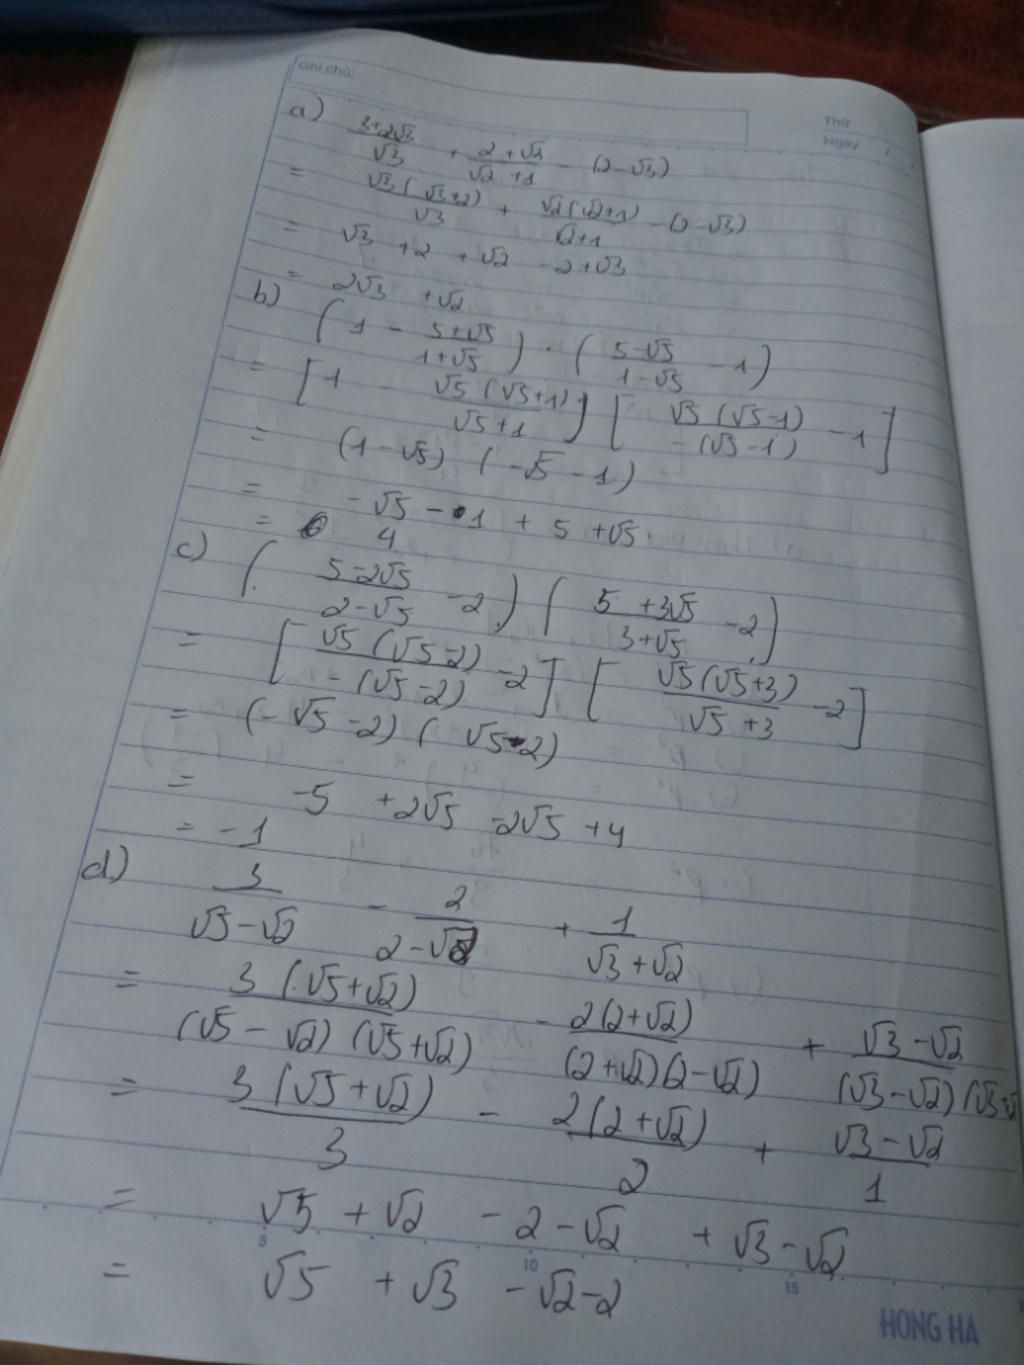 Ghi chú:
Thứ
Ngày
a) (3+2√3)/√3 + (2+√2)/(√2+1) - (2-√3)
= √3(√3+2)/√3 + √2(√2+1)/(√2+1) - (2-√3)
= √3 + 2 + √2 - 2 + √3
= 2√3 + √2
b) (1 - (5+√5)/(1+√5)) · ((5-√5)/(1-√5) - 1)
= [1 - √5(√5+1)/(√5+1)] [√5(√5-1)/-(√5-1) - 1]
= (1-√5) (-√5-1)
= -√5 - 1 + 5 + √5
= 4
c) ((5-2√5)/(2-√5) - 2) ((5+3√5)/(3+√5) - 2)
= [√5(√5-2)/-(√5-2) - 2] [√5(√5+3)/(√5+3) - 2]
= (-√5-2) (√5-2)
= -5 + 2√5 - 2√5 + 4
= -1
d) 3/(√5-√2) - 2/(2-√2) + 1/(√3+√2)
= 3(√5+√2)/(√5-√2)(√5+√2) - 2(2+√2)/(2+√2)(2-√2) + (√3-√2)/(√3-√2)(√3+√
= 3(√5+√2)/3 - 2(2+√2)/2 + (√3-√2)/1
= √5 + √2 - 2 - √2 + √3 - √2
5 10 15
= √5 + √3 - √2 - 2
HONG HA